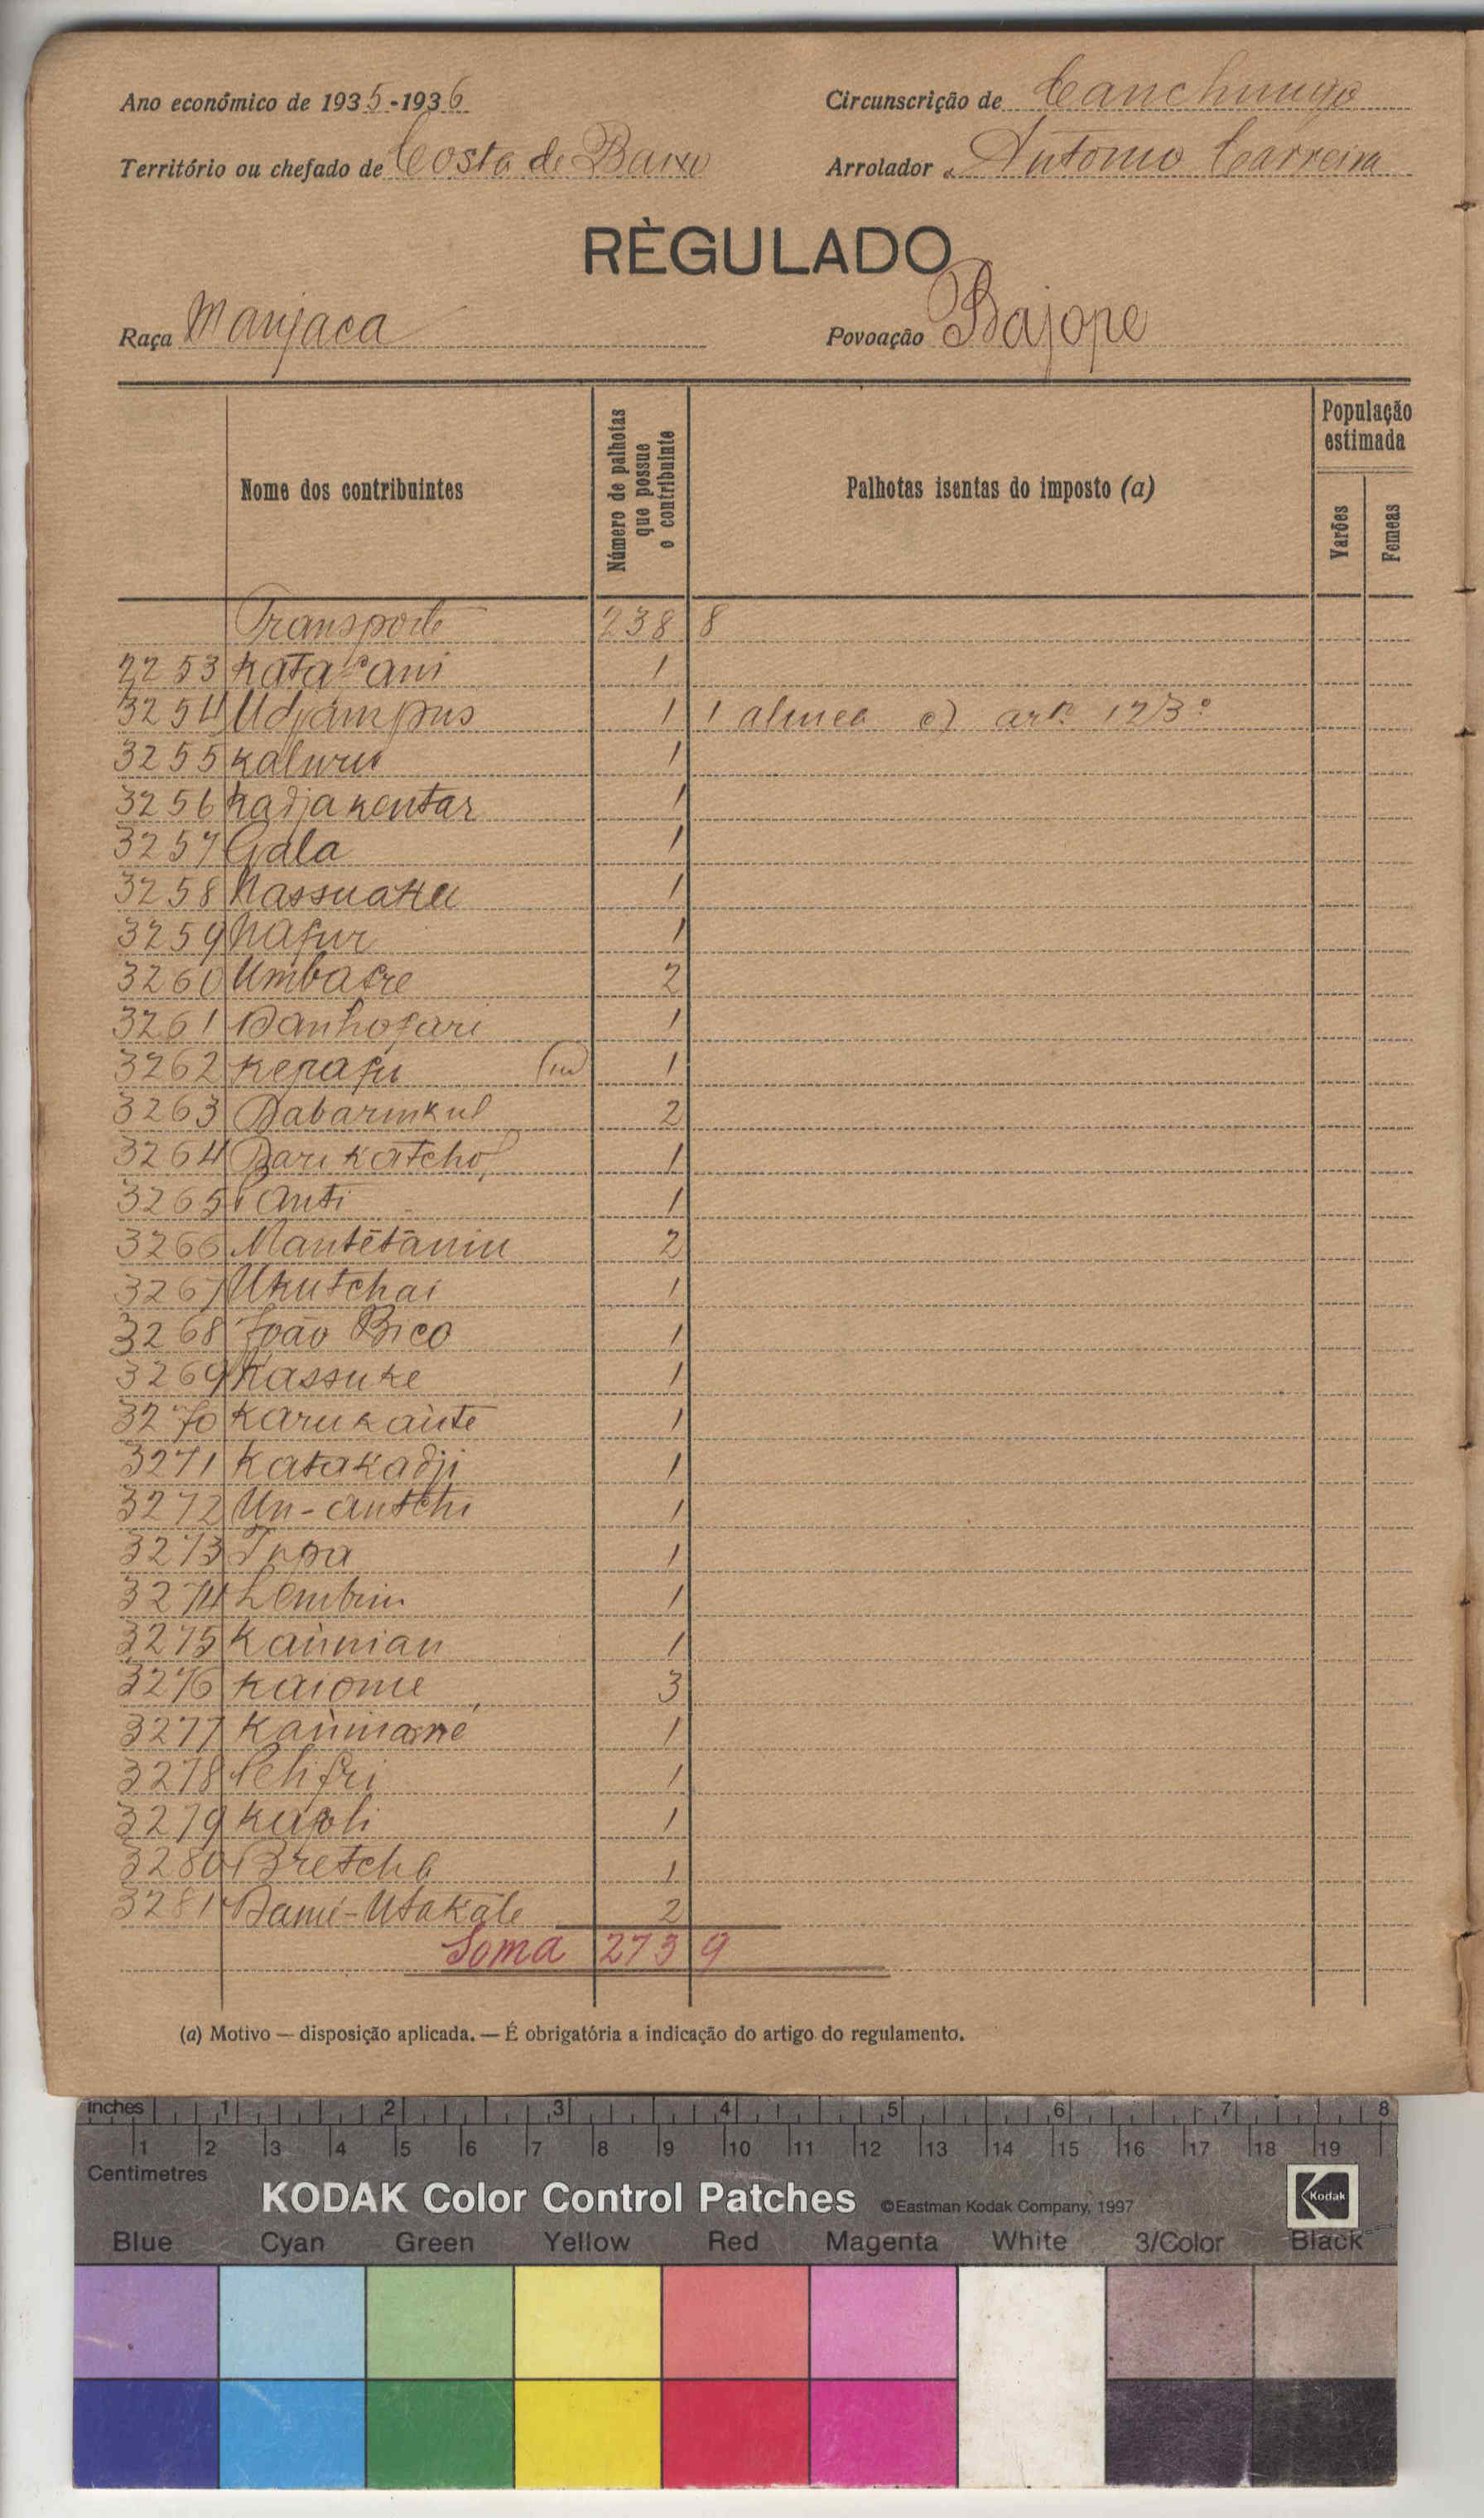 Ano económico de 1935-1936
Circunscrição de Canchungo
Território ou chefado de Costa de Baixo
Arrolador Antonio Carreira
RÈGULADO
Raça Manjaca
Povoação Bajope
Nome dos contribuintes
Número de palhotas que possue o contribuinte
Palhotas isentas do imposto (a)
População estimada
Varões
Femeas
Transporte 238 8
2253 1
3254 Udjámpus 1 1 alinea c) artº 123º
3255 1
3256 Kadjakentar 1
3257 Gala 1
3258 1
3259 Nafur 1
3260 Umbafre 2
3261 Banhofari 1
3262 Kepafu 1
3263 Dabarinkul 2
3264 Barikatchol 1
3265 1
3266 Mantētāniu 2
3267 Ukutchai 1
3268 João Bico 1
3269 Kassuke 1
3270 Karukaùte 1
3271 Katakadji 1
3272 Un-antchi 1
3273 1
3274 Lembrin 1
3275 Kaùnian 1
3276 Kaiome 3
3277 1
3278 1
3279 1
3280 Bretcha 1
3281 Damé-Utakale 2
Soma 273 9
(a) Motivo — disposição aplicada. — É obrigatória a indicação do artigo do regulamento.
Inches 1 2 3 4 5 6 7 8
1 2 3 4 5 6 7 8 9 10 11 12 13 14 15 16 17 18 19
Centimetres
KODAK Color Control Patches ©Eastman Kodak Company, 1997 Kodak
Blue Cyan Green Yellow Red Magenta White 3/Color Black